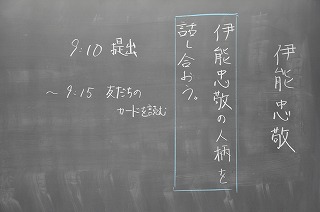 伊能忠敬
伊能忠敬の人柄を
話し合おう。
9:10 提出
～9:15 友だちの
カードを読む